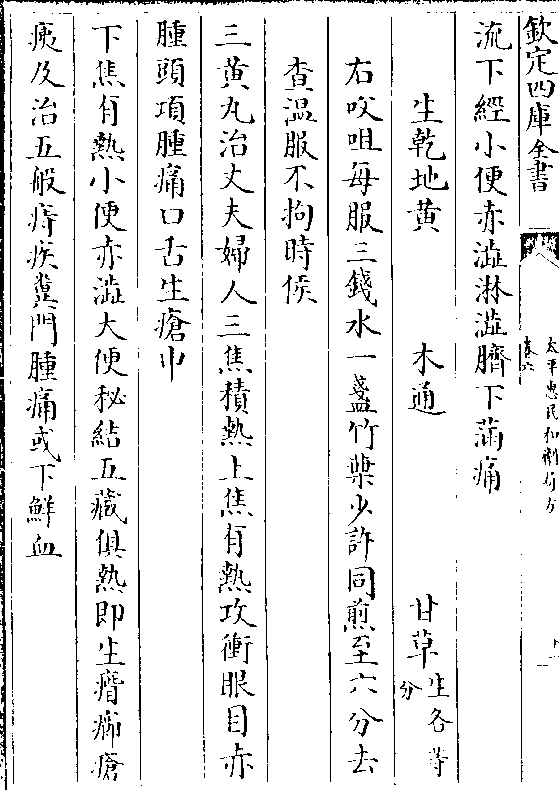 欽定四庫全書
太平惠民和劑局方
卷六
流下經小便赤澁淋澁臍下滿痛
生乾地黄　木通　甘草生各等分
右㕮咀每服三錢水一盞竹葉少許同煎至六分去
查温服不拘時候
三黄丸治丈夫婦人三焦積熱上焦有熱攻衝眼目赤
腫頭項腫痛口舌生瘡中
下焦有熱小便赤澁大便秘結五藏俱熱即生癰癤瘡
痍及治五般痔疾糞門腫痛或下鮮血